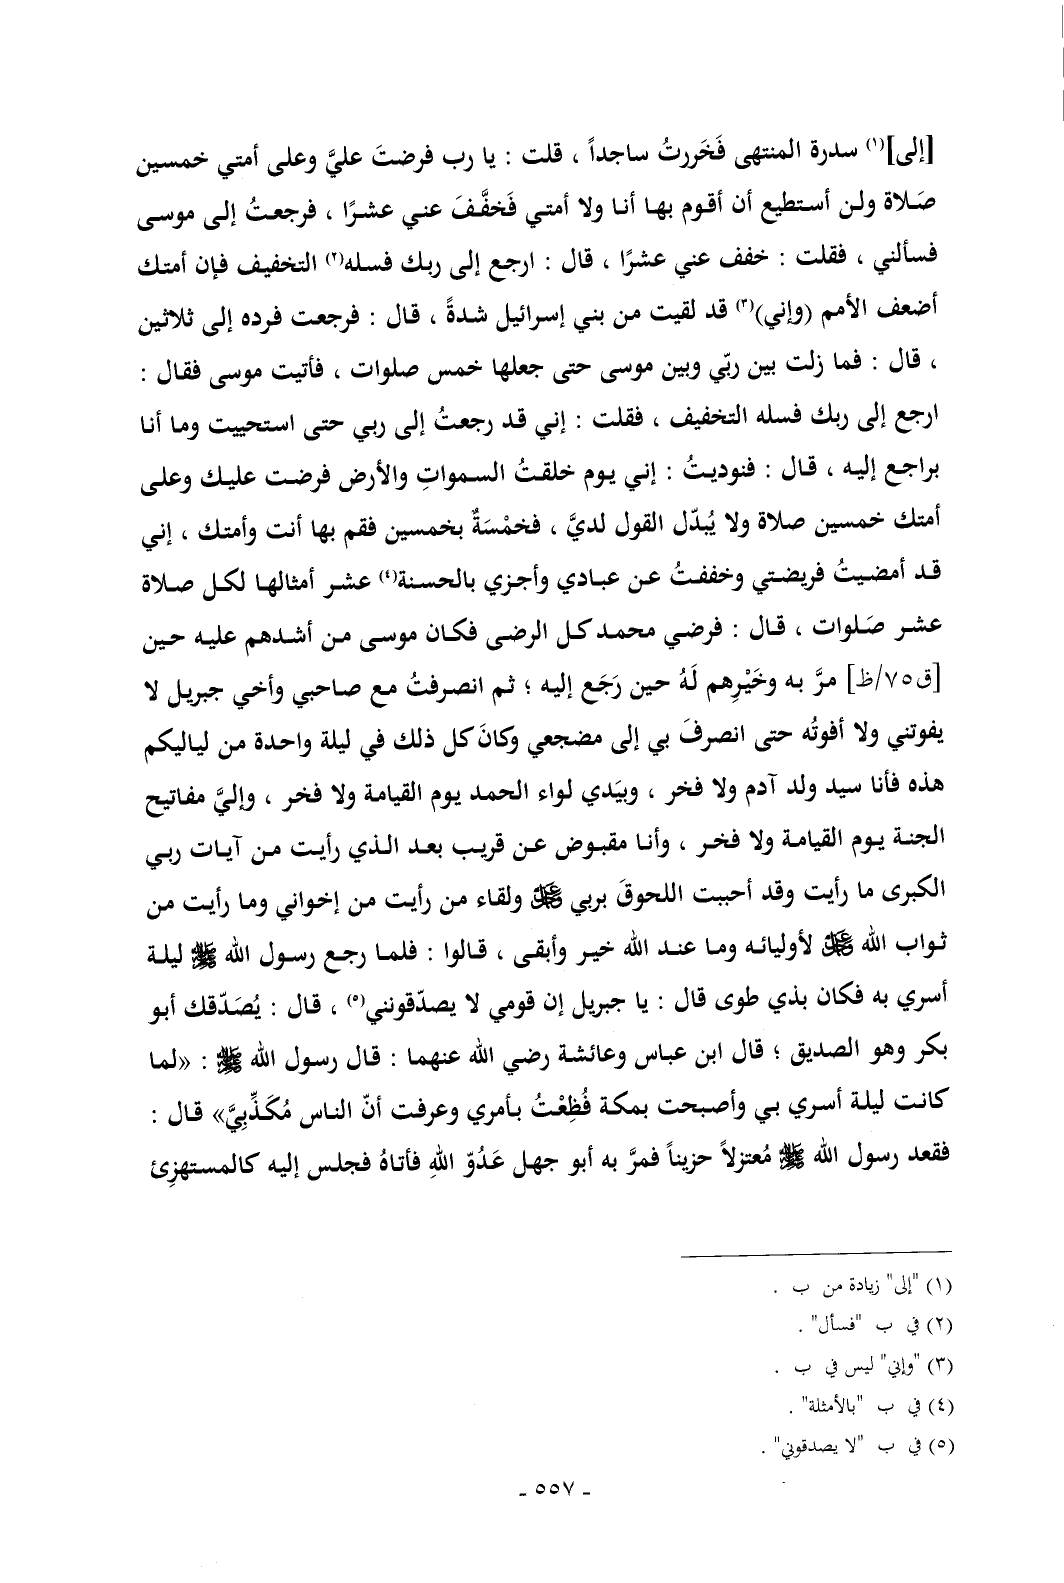 [إلى](١) سدرة المنتهى فَخَررتُ ساجداً ، قلت : يا رب فرضتَ عليَّ وعلى أمتي خمسين
صَلاة ولن أستطيع أن أقوم بها أنا ولا أمتي فَخفَّفَ عني عشرًا ، فرجعتُ إلى موسى
فسألني ، فقلت : خفف عني عشرًا ، قال : ارجع إلى ربك فسله(٢) التخفيف فإن أمتك
أضعف الأمم (وإني)(٣) قد لقيت من بني إسرائيل شدةً ، قال : فرجعت فرده إلى ثلاثين
، قال : فما زلت بين ربّي وبين موسى حتى جعلها خمس صلوات ، فأتيت موسى فقال :
ارجع إلى ربك فسله التخفيف ، فقلت : إني قد رجعتُ إلى ربي حتى استحييت وما أنا
براجع إليه ، قال : فنوديتُ : إني يوم خلقتُ السمواتِ والأرض فرضت عليك وعلى
أمتك خمسين صلاة ولا يُبدّل القول لديَّ ، فخمْسَةٌ بخمسين فقم بها أنت وأمتك ، إني
قد أمضيتُ فريضتي وخففتُ عن عبادي وأجزي بالحسنة(٤) عشر أمثالها لكل صلاة
عشر صَلوات ، قال : فرضي محمد كل الرضى فكان موسى من أشدهم عليه حين
[ق٧٥/ظ] مرَّ به وخَيْرِهم لَهُ حين رَجَع إليه ؛ ثم انصرفتُ مع صاحبي وأخي جبريل لا
يفوتني ولا أفوتُه حتى انصرفَ بي إلى مضجعي وكانَ كل ذلك في ليلة واحدة من لياليكم
هذه فأنا سيد ولد آدم ولا فخر ، وبيَدي لواء الحمد يوم القيامة ولا فخر ، وإليَّ مفاتيح
الجنة يوم القيامة ولا فخر ، وأنا مقبوض عن قريب بعد الذي رأيت من آيات ربي
الكبرى ما رأيت وقد أحببت اللحوقَ بربي ﷻ ولقاء من رأيت من إخواني وما رأيت من
ثواب الله ﷻ لأوليائه وما عند الله خير وأبقى ، قالوا : فلما رجع رسول الله ﷺ ليلة
أسري به فكان بذي طوى قال : يا جبريل إن قومي لا يصدّقونني(٥) ، قال : يُصَدّقك أبو
بكر وهو الصديق ؛ قال ابن عباس وعائشة رضي الله عنهما : قال رسول الله ﷺ : «لما
كانت ليلة أسري بي وأصبحت بمكة فُظِعْتُ بأمري وعرفت أنّ الناس مُكَذِّبِيَّ» قال :
فقعد رسول الله ﷺ مُعتزلاً حزيناً فمرَّ به أبو جهل عَدُوّ اللهِ فأتاهُ فجلس إليه كالمستهزِئ
(١) "إلى" زيادة من ب .
(٢) في ب "فسأل" .
(٣) "وإني" ليس في ب .
(٤) في ب "بالأمثلة" .
(٥) في ب "لا يصدقوني" .
ـ ٥٥٧ ـ